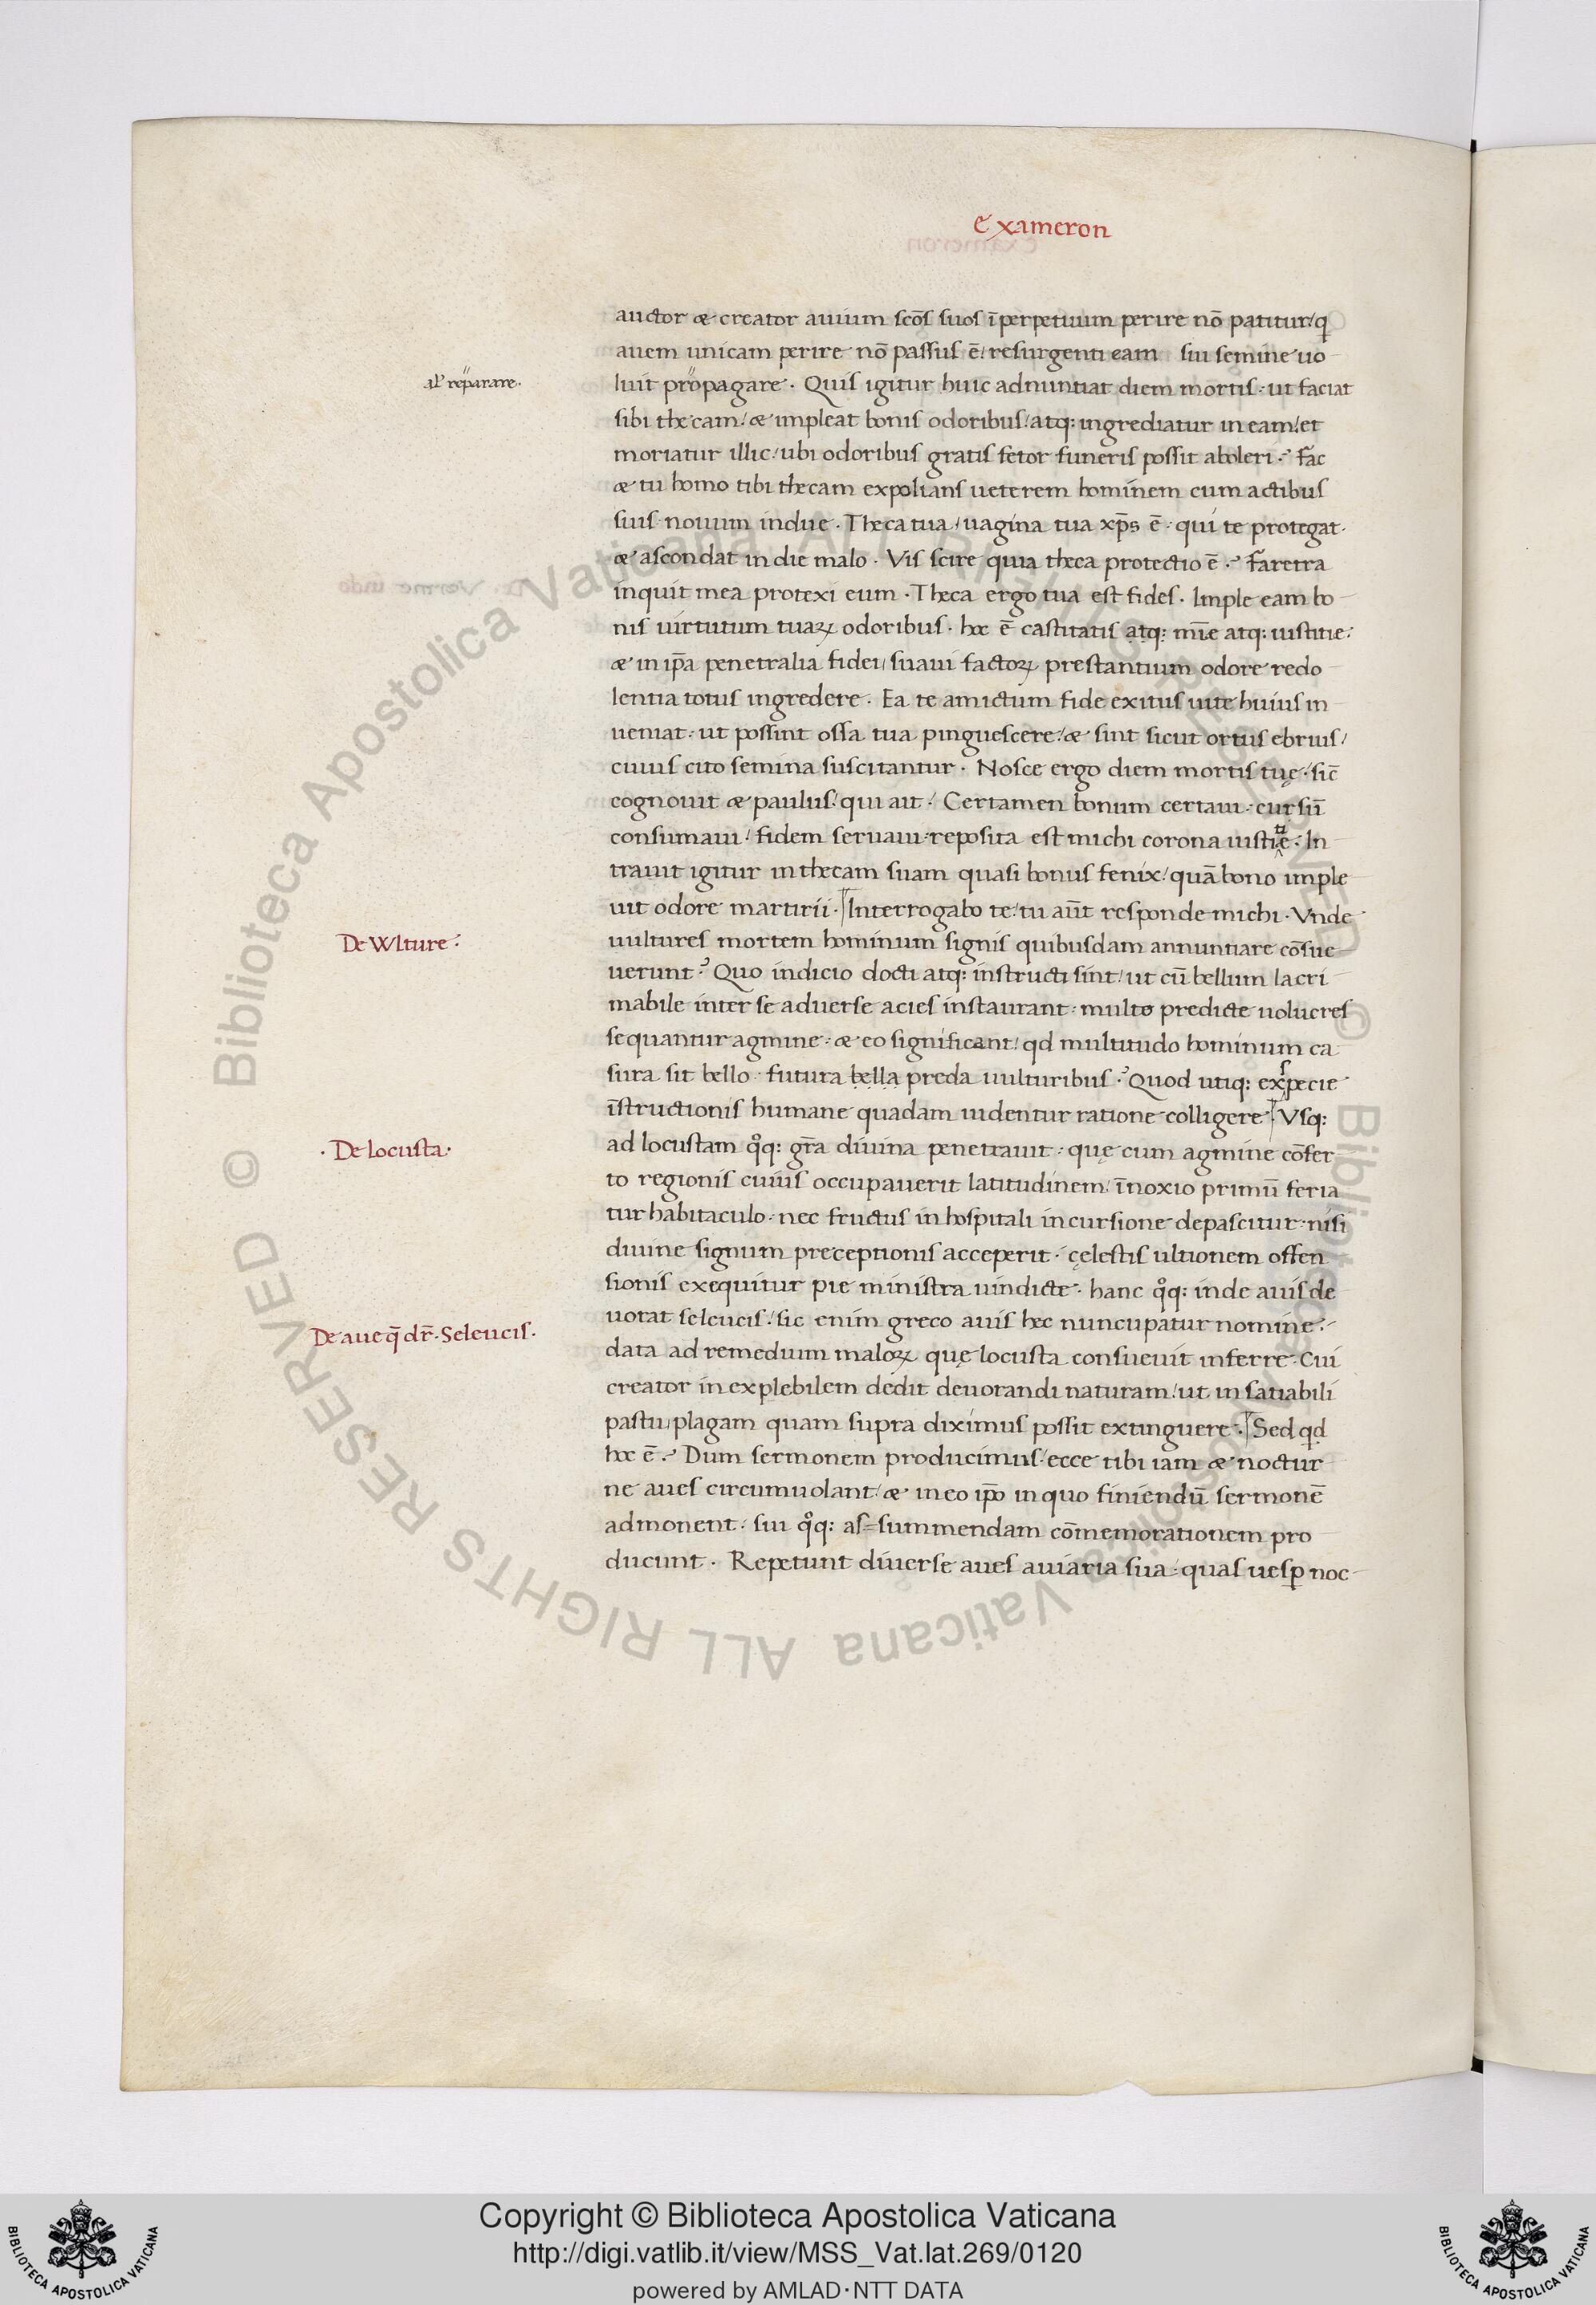 Exameron
auctor & creator auium scōs suos ī perpetuum perire nō patitur/ q
auem unicam perire nō passus ē/ resurgenti eam sui semine uo
al' reparare.
luit propagare. Quis igitur huic adnuntiat diem mortis: ut faciat
sibi thecam/ & impleat bonis odoribus/ atq: ingrediatur in eam/ et
moriatur illic/ ubi odoribus gratis fetor funeris possit aboleri. Fac
& tu homo tibi thecam expolians ueterem hominem cum actibus
suis nouum indue. Theca tua/ uagina tua xp̄s ē: qui te protegat.
& ascondat in die malo. Vis scire quia theca protectio ē. Faretra
inquit mea protexi eum. Theca ergo tua est fides. Imple eam bo
nis uirtutum tuaꝝ odoribus. hoc ē castitatis atq: mīe atq: iustitie:
& in ip̄a penetralia fidei/ suaui factoꝝ prestantium odore redo
lentia totus ingredere. Ea te amictum fide exitus uite huius in
ueniat: ut possint ossa tua pinguescere/ & sint sicut ortus ebrius/
cuius cito semina suscitantur. Nosce ergo diem mortis tuę: sic̄
cognouit & paulus/ qui ait: Certamen bonum certaui: cursū
consumaui/ fidem seruaui: reposita est michi corona iustitie: In
trauit igitur in thecam suam quasi bonus fenix/ quā bono imple
uit odore martirii. Interrogabo te/ tu aūt responde michi. Vnde
De Wlture:
uultures mortem hominum signis quibusdam annuntiare cōsue
uerunt? Quo indicio docti atq: instructi sint/ ut cū bellum lacri
mabile inter se aduerse acies instaurant: multo predicte uolucres
sequantur agmine: & eo significant/ qd multitudo hominum ca
sura sit bello futura bella preda uulturibus? Quod utiq: exspecie
īstructionis humane quadam uidentur ratione colligere. Vsq:
. De locusta.
ad locustam qͦq: gr̄a diuina penetrauit: quę cum agmine cōfer
to regionis cuius occupauerit latitudinem/ īnoxio primū feria
tur habitaculo: nec fructus inhospitali incursione depascitur: nisi
diuine signum preceptionis acceperit. cęlestis ultionem offen
sionis exequitur pie ministra uindicte. hanc qͦq: inde auis de
De aue q̄ dr̄. Seleucis.
uorat seleucis/ sic enim greco auis hec nuncupatur nomine:
data ad remedium maloꝝ quę locusta consueuit inferre. Cui
creator inexplebilem dedit deuorandi naturam/ ut insatiabili
pastu/ plagam quam supra diximus possit extinguere. Sed qd
hoc ē. Dum sermonem producimus/ ecce tibi iam & noctur
ne aues circumuolant/ & in eo ip̄o in quo finiendū sermonē
admonent: sui qͦq: as=summendam cōmemorationem pro
ducunt. Repetunt diuerse aues auiaria sua: quas uesꝑ noc
Copyright © Biblioteca Apostolica Vaticana
http://digi.vatlib.it/view/MSS_Vat.lat.269/0120
powered by AMLAD·NTT DATA
BIBLIOTECA APOSTOLICA VATICANA
BIBLIOTECA APOSTOLICA VATICANA
© Biblioteca Apostolica Vaticana ALL RIGHTS RESERVED
© Biblioteca Apostolica Vaticana ALL RIGHTS RESERVED